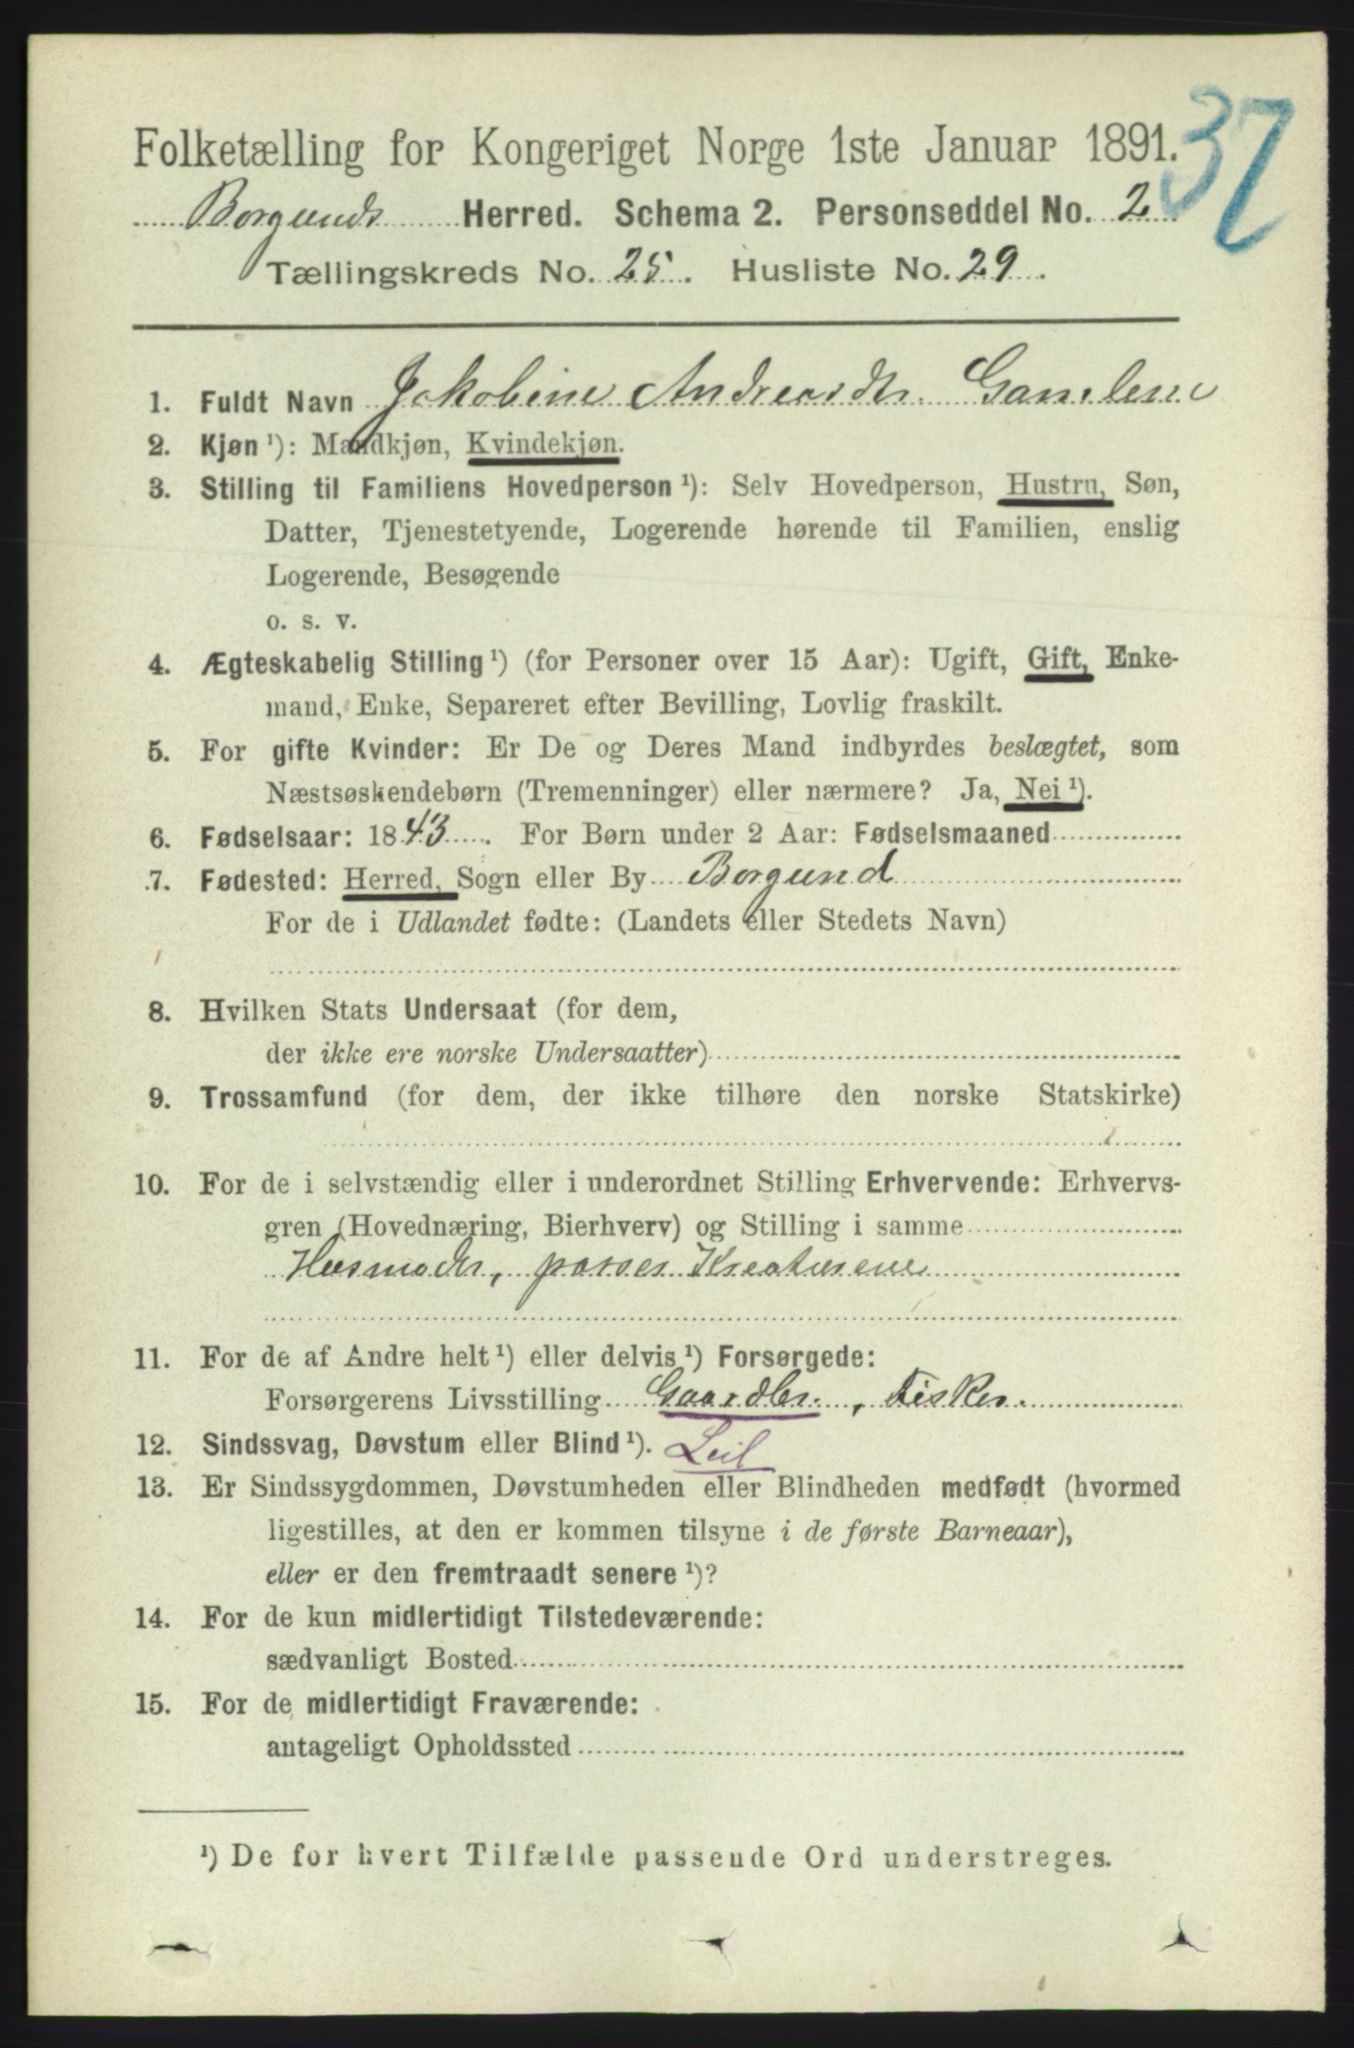 37
Folketælling for Kongeriget Norge 1ste Januar 1891.
Borgunds Herred. Schema 2. Personseddel No. 2
Tællingskreds No. 25. Husliste No. 29.
1. Fuldt Navn Jakobine Andreasdtr.
2. Kjøn ¹): Mandkjøn, Kvindekjøn.
3. Stilling til Familiens Hovedperson ¹): Selv Hovedperson, Hustru, Søn,
Datter, Tjenestetyende, Logerende hørende til Familien, enslig
Logerende, Besøgende
o. s. v.
4. Ægteskabelig Stilling ¹) (for Personer over 15 Aar): Ugift, Gift, Enke-
mand, Enke, Separeret efter Bevilling, Lovlig fraskilt.
5. For gifte Kvinder: Er De og Deres Mand indbyrdes beslægtet, som
Næstsøskendebørn (Tremenninger) eller nærmere? Ja, Nei ¹).
6. Fødselsaar: 1843. For Børn under 2 Aar: Fødselsmaaned
7. Fødested: Herred, Sogn eller By Borgund
For de i Udlandet fødte: (Landets eller Stedets Navn)
8. Hvilken Stats Undersaat (for dem,
der ikke ere norske Undersaatter)
9. Trossamfund (for dem, der ikke tilhøre den norske Statskirke)
10. For de i selvstændig eller i underordnet Stilling Erhvervende: Erhvervs-
gren (Hovednæring, Bierhverv) og Stilling i samme
Husmoder, passer Kreaturene
11. For de af Andre helt ¹) eller delvis ¹) Forsørgede:
Forsørgerens Livsstilling Gaardbr., Fisker.
12. Sindssvag, Døvstum eller Blind ¹). Leil
13. Er Sindssygdommen, Døvstumheden eller Blindheden medfødt (hvormed
ligestilles, at den er kommen tilsyne i de første Barneaar),
eller er den fremtraadt senere ¹)?
14. For de kun midlertidigt Tilstedeværende:
sædvanligt Bosted
15. For de midlertidigt Fraværende:
antageligt Opholdssted
¹) De for hvert Tilfælde passende Ord understreges.